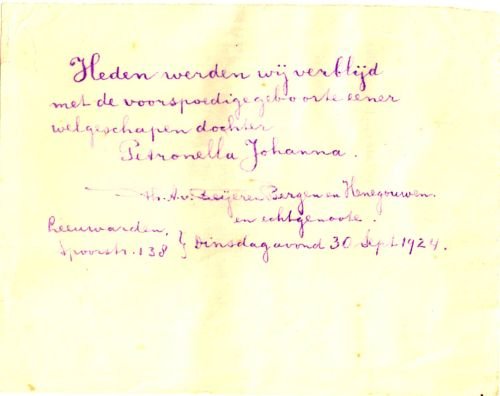 Heden werden wij verblijd
met de voorspoedige geboorte eener
welgeschapen dochter
Petronella Johanna.
Th. A. v. Beijeren Bergen en Henegouwen.
en echtgenoote.
Leeuwarden,
Spoorstr. 138 } Dinsdagavond 30 Sept. 1924.